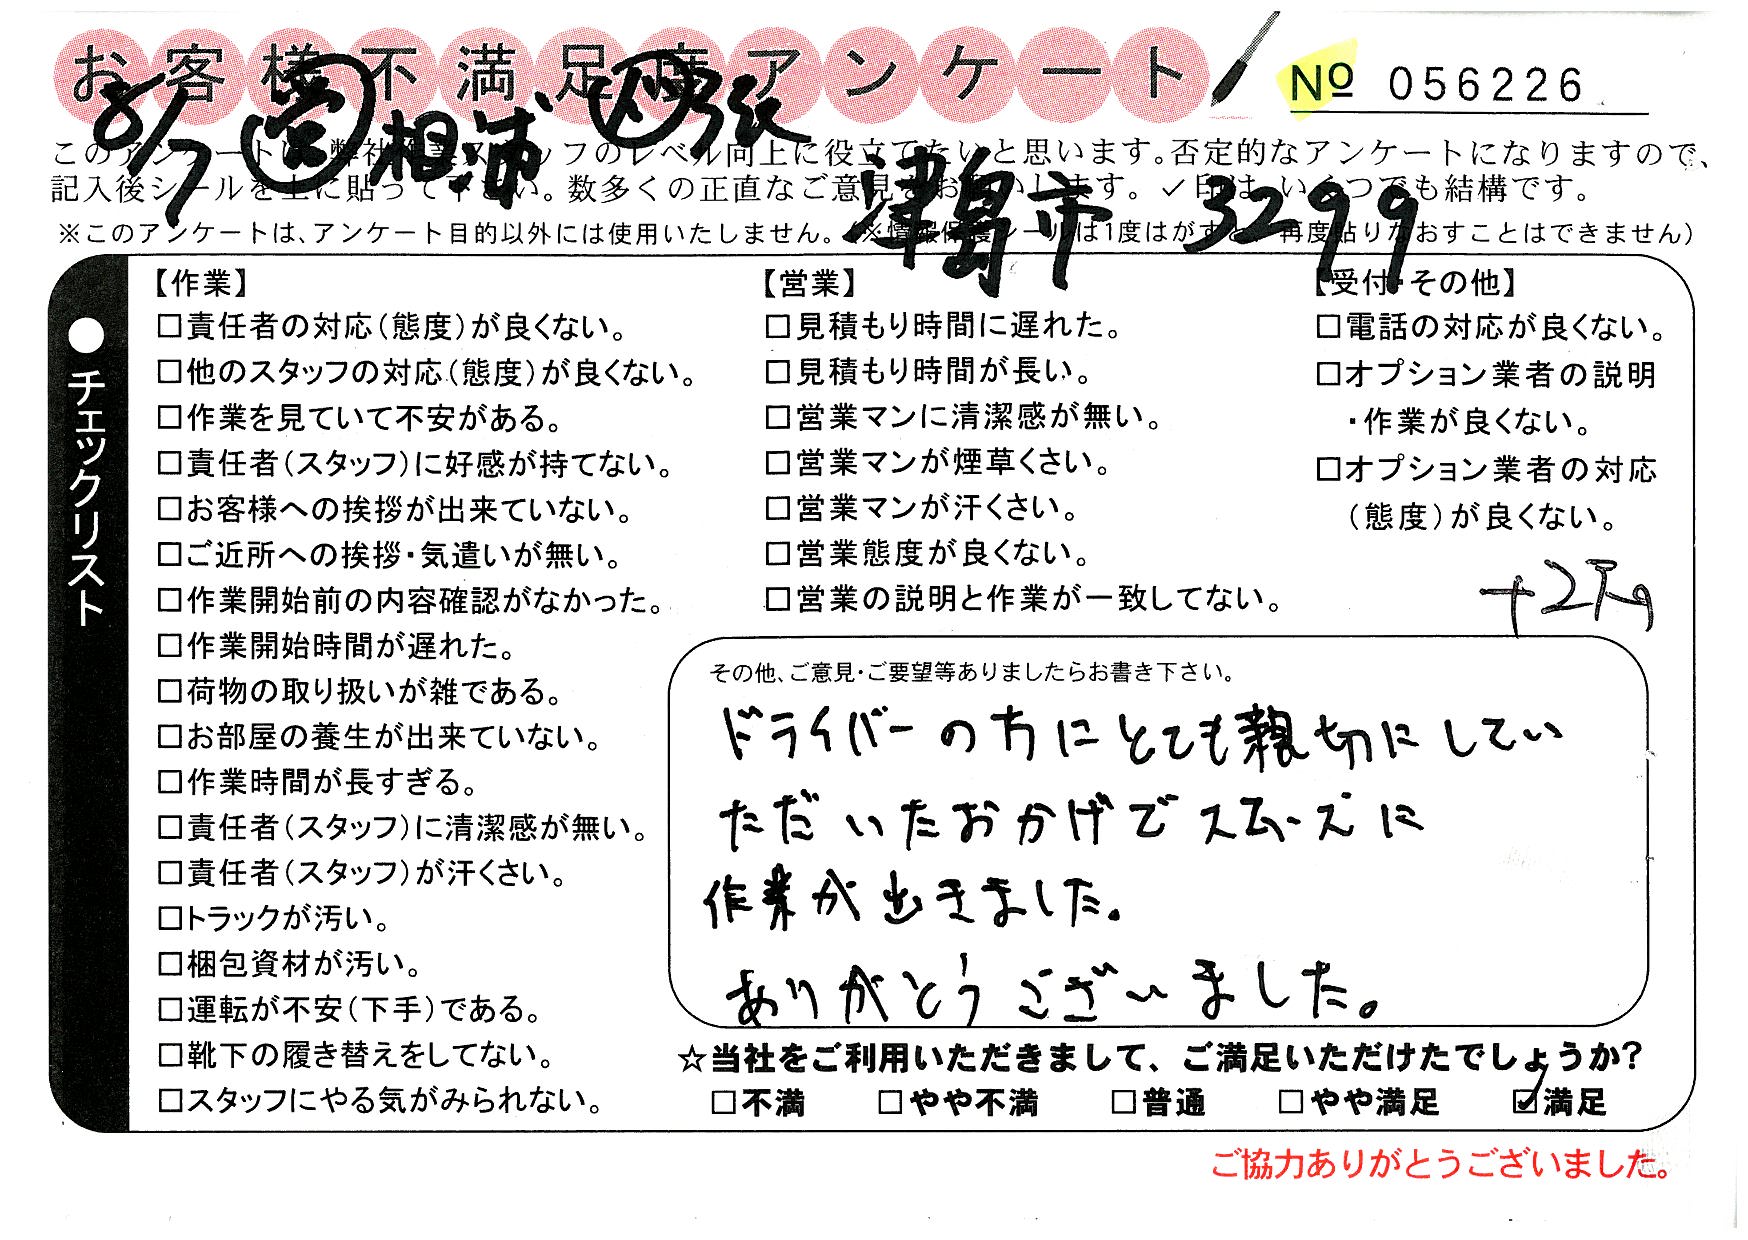 お客様不満足度アンケート
No 056226
8/7 営 相浦 作 張
このアンケートは、弊社作業スタッフのレベル向上に役立てたいと思います。否定的なアンケートになりますので、
記入後シールを上に貼って下さい。数多くの正直なご意見をお願いします。✓印は、いくつでも結構です。
津島市 3299
※このアンケートは、アンケート目的以外には使用いたしません。(※情報保護シールは1度はがすと、再度貼りなおすことはできません)
●チェックリスト
【作業】
□責任者の対応(態度)が良くない。
□他のスタッフの対応(態度)が良くない。
□作業を見ていて不安がある。
□責任者(スタッフ)に好感が持てない。
□お客様への挨拶が出来ていない。
□ご近所への挨拶・気遣いが無い。
□作業開始前の内容確認がなかった。
□作業開始時間が遅れた。
□荷物の取り扱いが雑である。
□お部屋の養生が出来ていない。
□作業時間が長すぎる。
□責任者(スタッフ)に清潔感が無い。
□責任者(スタッフ)が汗くさい。
□トラックが汚い。
□梱包資材が汚い。
□運転が不安(下手)である。
□靴下の履き替えをしてない。
□スタッフにやる気がみられない。
【営業】
□見積もり時間に遅れた。
□見積もり時間が長い。
□営業マンに清潔感が無い。
□営業マンが煙草くさい。
□営業マンが汗くさい。
□営業態度が良くない。
□営業の説明と作業が一致してない。
【受付・その他】
□電話の対応が良くない。
□オプション業者の説明
・作業が良くない。
□オプション業者の対応
(態度)が良くない。
その他、ご意見・ご要望等ありましたらお書き下さい。
ドライバーの方にとても親切にしてい
ただいたおかげでスムーズに
作業が出きました。
ありがとうございました。
☆当社をご利用いただきまして、ご満足いただけたでしょうか?
□不満 □やや不満 □普通 □やや満足 ☑満足
ご協力ありがとうございました。